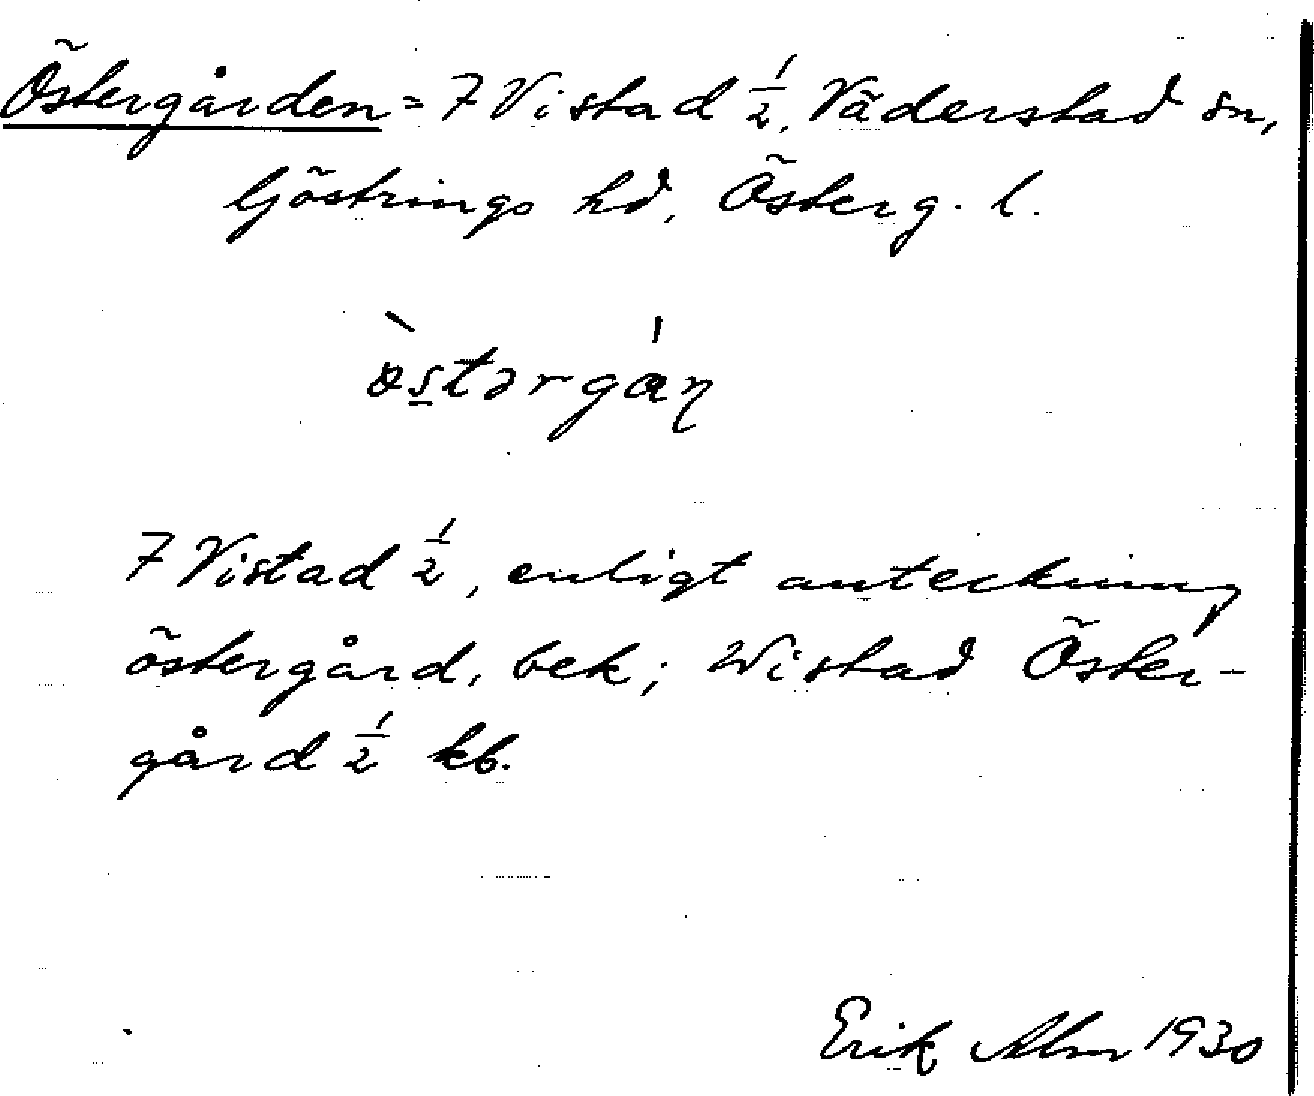 Östergården = 7 Vistad 1/2, Väderstad sn,
Göstrings hd, Österg. l.
ò̀stərgá̍ɳ
7 Vistad 1/2, enligt anteckning
östergård, bek; Wistad Öster-
gård 1/2 kb.
Erik Alm 1930